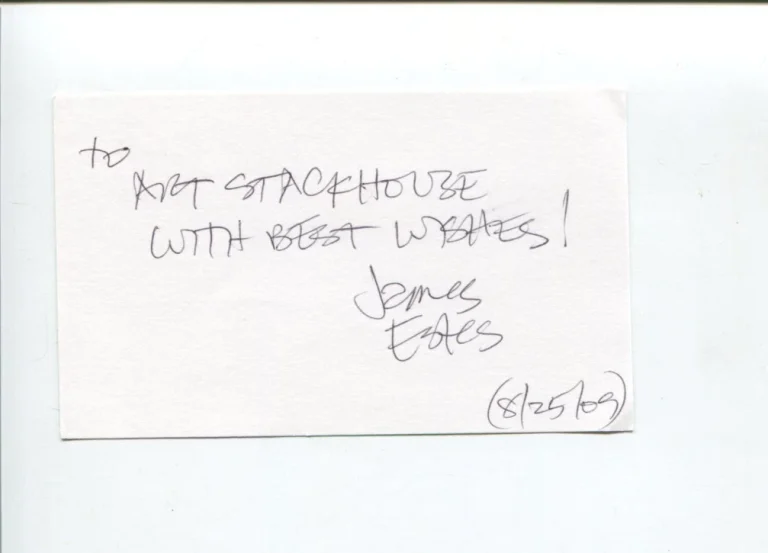 to
ART STACKHOUSE
WITH BEST WISHES!
James
Estes
(8/25/09)